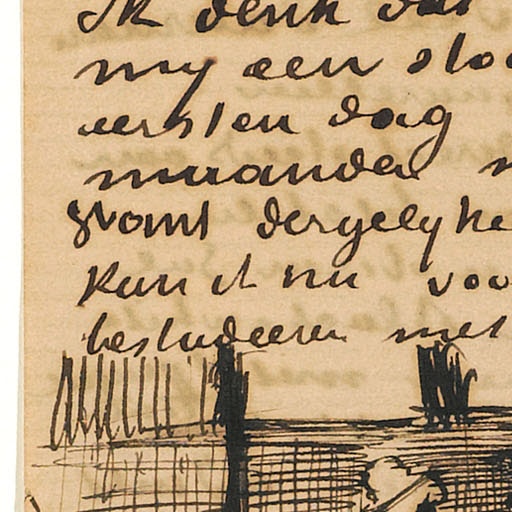 Ik denk dat
my een sto
eersten dag
maanden
Want dergelyke
kan ik nu voo
bestudeeren met